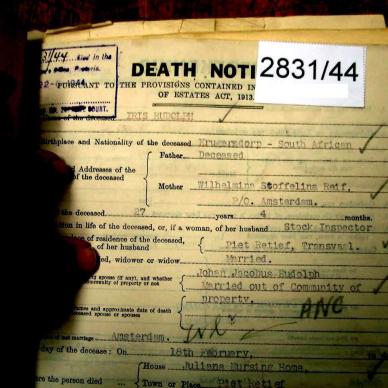 31/44 Filed in the
Pretoria.
22-6-1944
COURT.
DEATH NOTI
2831/44
PURSUANT TO THE PROVISIONS CONTAINED IN
OF ESTATES ACT, 1913.
Name of the deceased IRIS RUDOLPH
Birthplace and Nationality of the deceased Krugersdorp - South African
Father Deceased
Addresses of the
of the deceased
Mother Wilhelmina Stoffelina Reif.
P/O. Amsterdam.
the deceased 27 years 4 months.
in life of the deceased, or, if a woman, of her husband Stock Inspector
place of residence of the deceased,
of her husband Piet Retief, Transvaal.
widower or widow Married.
Johan Jacobus Rudolph
spouse (if any), and whether
community of property or not Married out of Community of
property.
names and approximate date of death
deceased spouse or spouses
ANC
of marriage Amsterdam.
day of the decease: On 18th February,
House Juliana Nursing Home.
the person died Town or Place Piet Retief